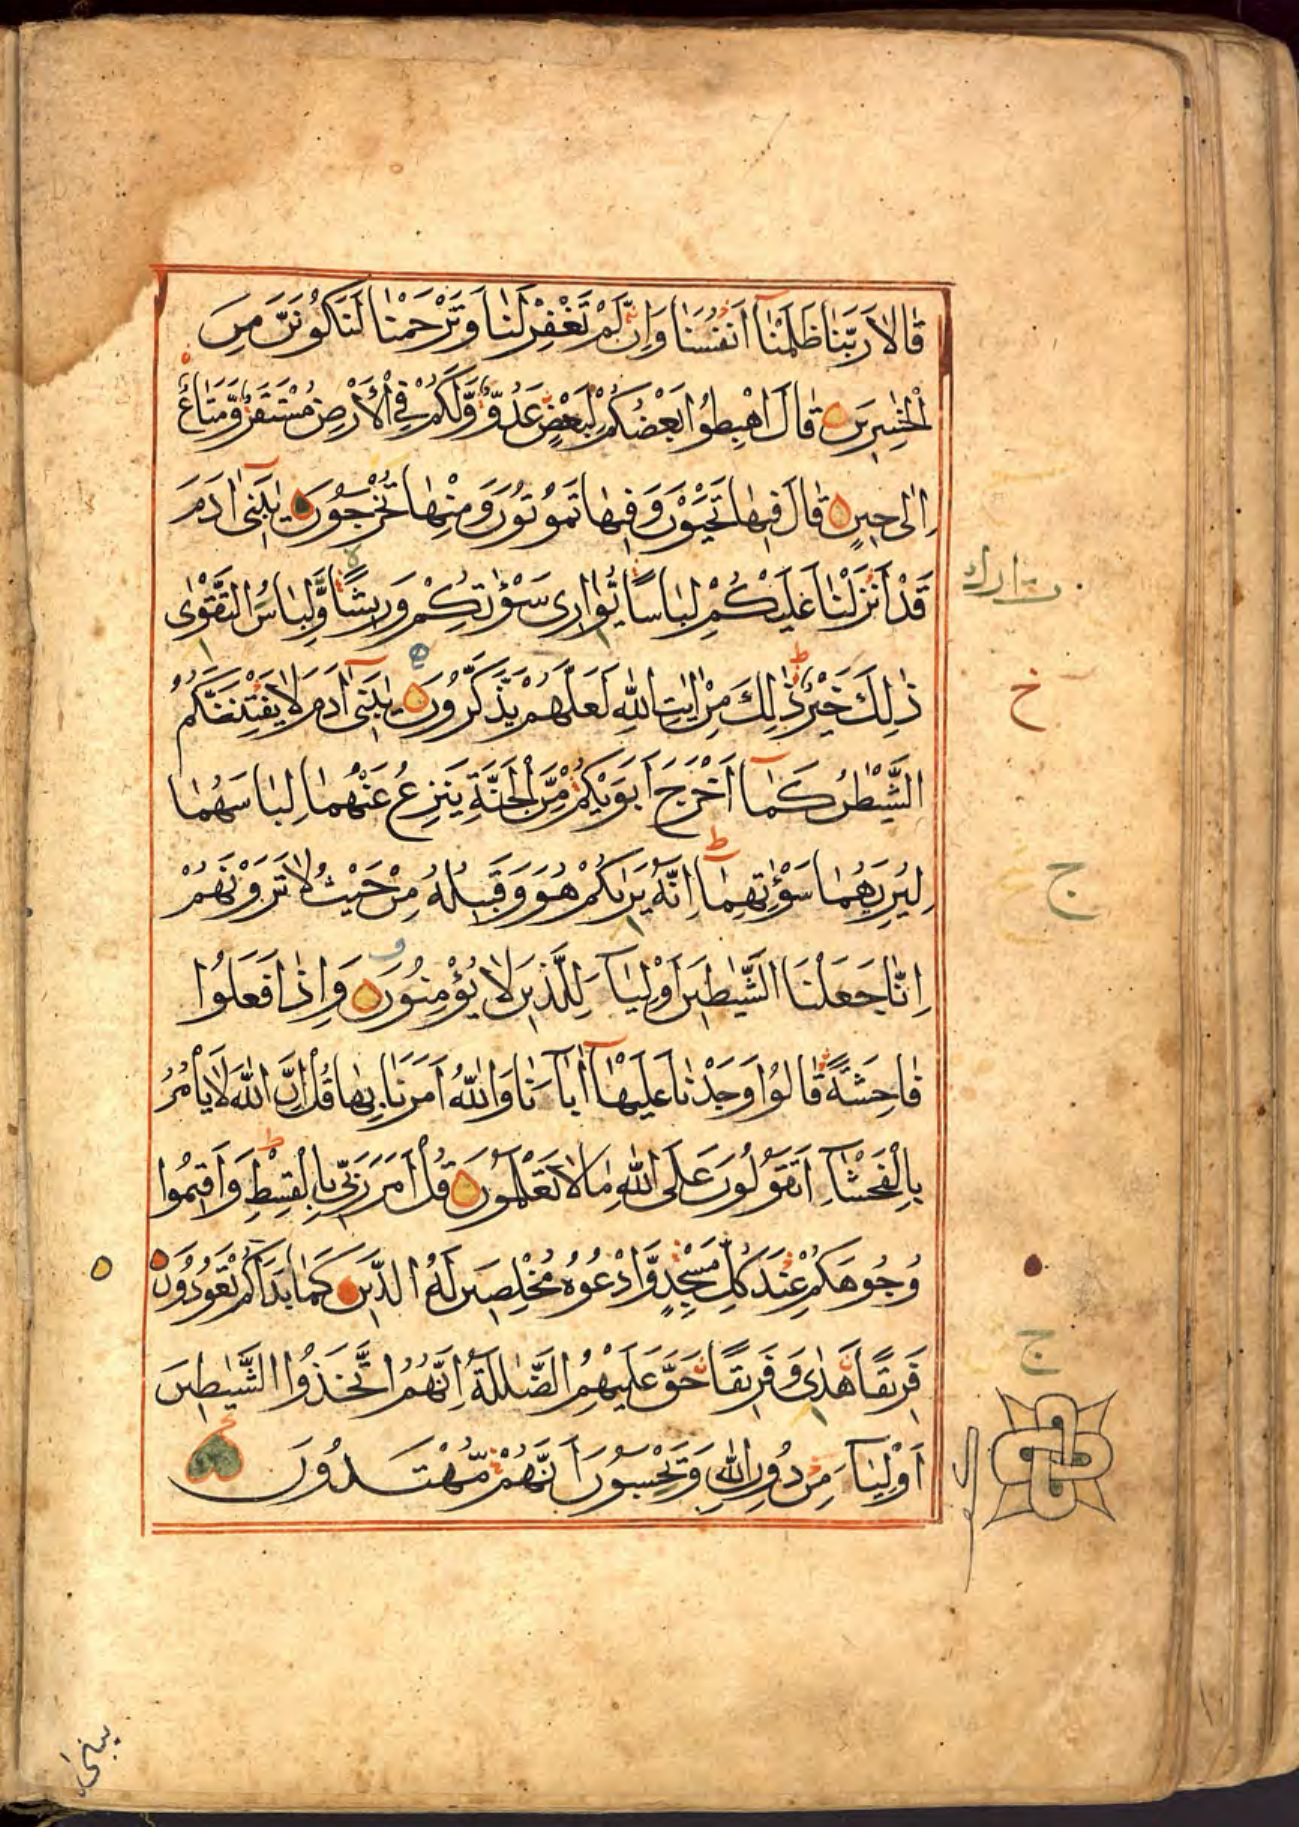 قَالَا رَبَّنَا ظَلَمْنَآ اَنْفُسَنَا وَاِنْ لَّمْ تَغْفِرْ لَنَا وَتَرْحَمْنَا لَنَكُوْنَنَّ مِنَ
الْخٰسِرِيْنَ قَالَ اهْبِطُوْا بَعْضُكُمْ لِبَعْضٍ عَدُوٌّ وَّلَكُمْ فِي الْاَرْضِ مُسْتَقَرٌّ وَّمَتَاعٌ
اِلٰى حِيْنٍ قَالَ فِيْهَا تَحْيَوْنَ وَفِيْهَا تَمُوْتُوْنَ وَمِنْهَا تُخْرَجُوْنَ يٰبَنِيْٓ اٰدَمَ
قَدْ اَنْزَلْنَا عَلَيْكُمْ لِبَاسًا يُّوَارِيْ سَوْءٰتِكُمْ وَرِيْشًا وَّلِبَاسُ التَّقْوٰى
تبارك
ذٰلِكَ خَيْرٌ ذٰلِكَ مِنْ اٰيٰتِ اللّٰهِ لَعَلَّهُمْ يَذَّكَّرُوْنَ يٰبَنِيْٓ اٰدَمَ لَا يَفْتِنَنَّكُمُ
خ
الشَّيْطٰنُ كَمَآ اَخْرَجَ اَبَوَيْكُمْ مِّنَ الْجَنَّةِ يَنْزِعُ عَنْهُمَا لِبَاسَهُمَا
لِيُرِيَهُمَا سَوْءٰتِهِمَا اِنَّهٗ يَرٰىكُمْ هُوَ وَقَبِيْلُهٗ مِنْ حَيْثُ لَا تَرَوْنَهُمْ
ج
اِنَّا جَعَلْنَا الشَّيٰطِيْنَ اَوْلِيَآءَ لِلَّذِيْنَ لَا يُؤْمِنُوْنَ وَاِذَا فَعَلُوْا
فَاحِشَةً قَالُوْا وَجَدْنَا عَلَيْهَآ اٰبَآءَنَا وَاللّٰهُ اَمَرَنَا بِهَا قُلْ اِنَّ اللّٰهَ لَا يَاْمُرُ
بِالْفَحْشَآءِ اَتَقُوْلُوْنَ عَلَى اللّٰهِ مَا لَا تَعْلَمُوْنَ قُلْ اَمَرَ رَبِّيْ بِالْقِسْطِ وَاَقِيْمُوْا
وُجُوْهَكُمْ عِنْدَ كُلِّ مَسْجِدٍ وَّادْعُوْهُ مُخْلِصِيْنَ لَهُ الدِّيْنَ كَمَا بَدَاَكُمْ تَعُوْدُوْنَ
ج
فَرِيْقًا هَدٰى وَفَرِيْقًا حَقَّ عَلَيْهِمُ الضَّلٰلَةُ اِنَّهُمُ اتَّخَذُوا الشَّيٰطِيْنَ
اَوْلِيَآءَ مِنْ دُوْنِ اللّٰهِ وَيَحْسَبُوْنَ اَنَّهُمْ مُّهْتَدُوْنَ